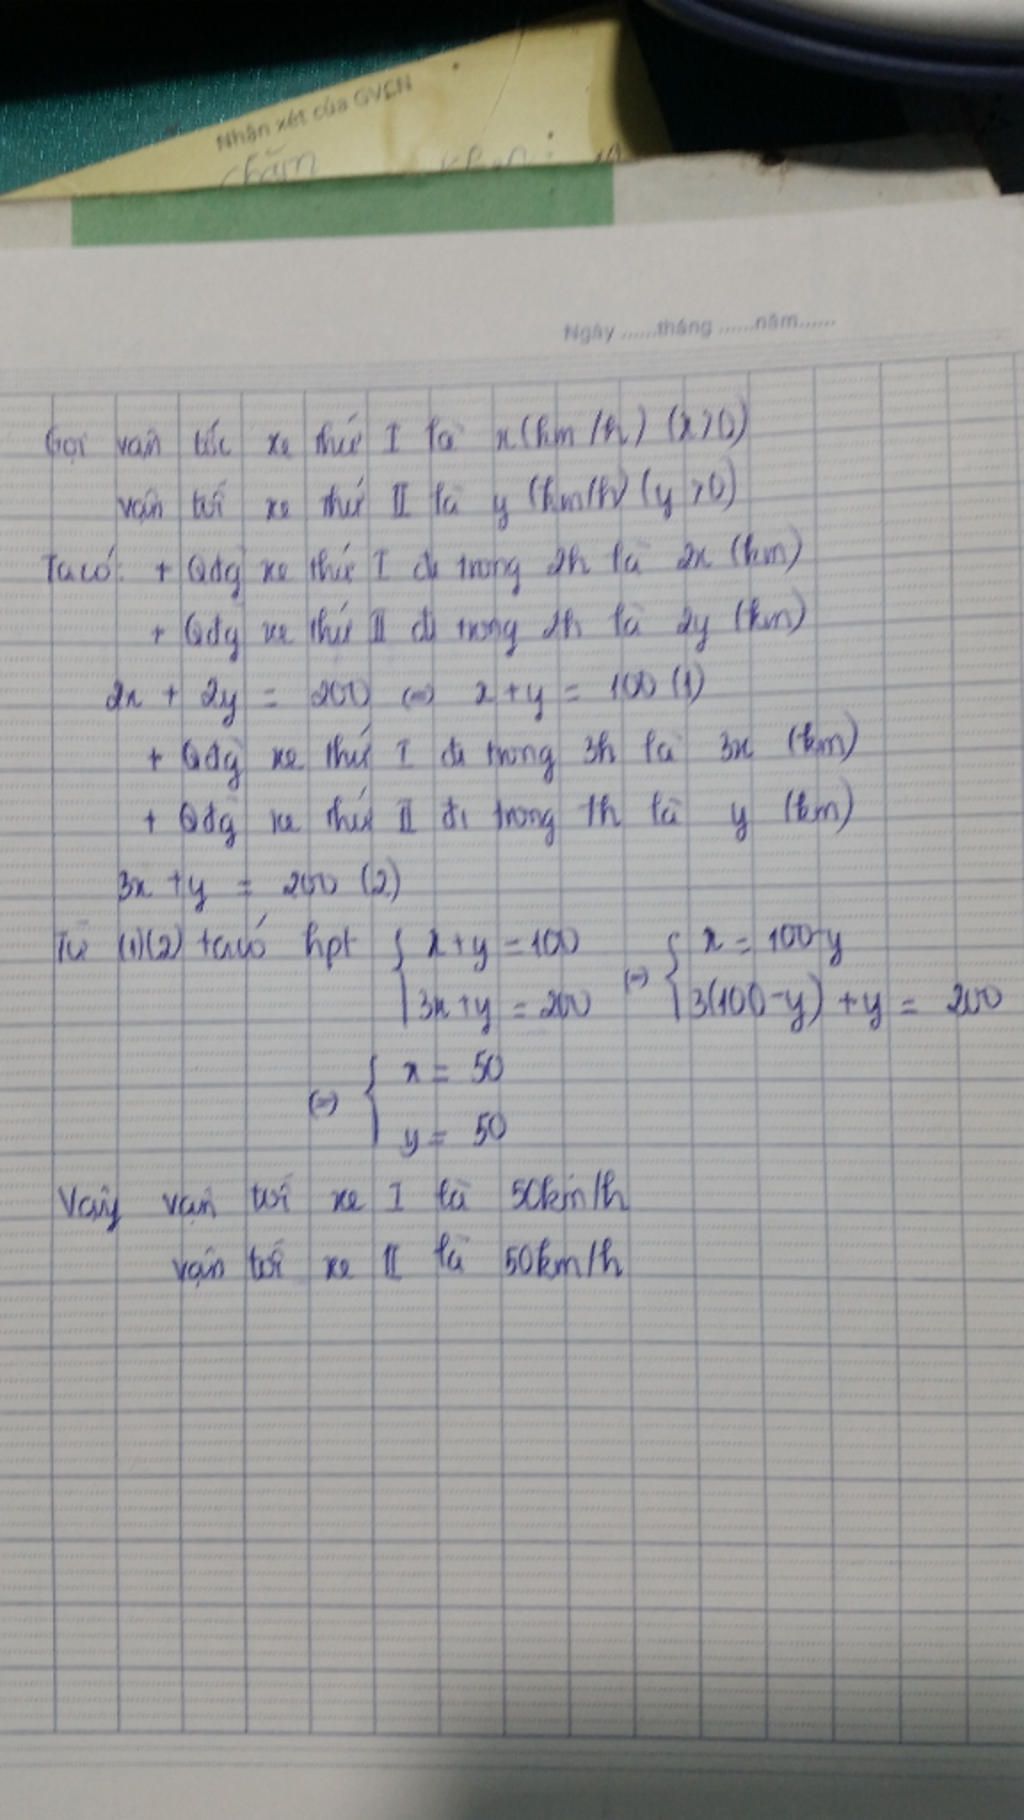 Nhận xét của GVCN
chăm
Ngày ......tháng ......năm......
Gọi vận tốc xe thứ I là x (km/h) (x>0)
vận tốc xe thứ II là y (km/h) (y>0)
Ta có: + Qđg xe thứ I đi trong 2h là 2x (km)
+ Qđg xe thứ II đi trong 2h là 2y (km)
2x + 2y = 200 (=) x+y = 100 (1)
+ Qđg xe thứ I đi trong 3h là 3x (km)
+ Qđg xe thứ II đi trong 1h là y (km)
3x + y = 200 (2)
Từ (1)(2) ta có hpt { x+y = 100 (=) { x = 100-y
3x+y = 200 3(100-y) + y = 200
(=) { x = 50
y = 50
Vậy vận tốc xe I là 50km/h
vận tốc xe II là 50km/h